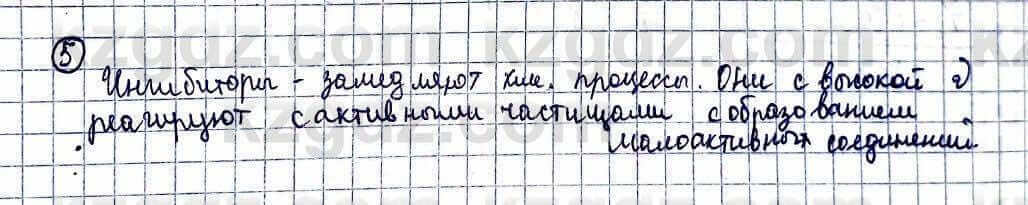 5
Ингибиторы - замедляют хим. процессы. Они с высокой υ
реагируют с активными частицами с образованием
малоактивных соединений.